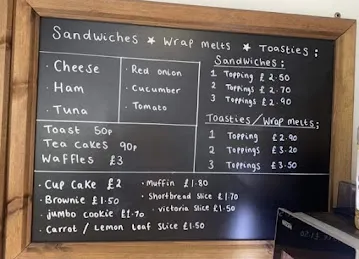 Sandwiches * Wrap melts * Toasties :
· Cheese
· Ham
· Tuna
· Red onion
· Cucumber
· Tomato
Sandwiches :
1 Topping £2.50
2 Toppings £2.70
3 Toppings £2.90
Toasties / Wrap melts :
1 Topping £2.90
2 Toppings £3.20
3 Toppings £3.50
Toast 50p
Tea cakes 90p
Waffles £3
· Cup Cake £2
· Brownie £1.50
· jumbo cookie £1.70
· Carrot / Lemon Loaf Slice £1.50
· Muffin £1.80
· Shortbread slice £1.70
· victoria slice £1.50